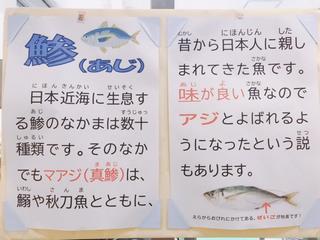 鯵(あじ)
日本近海に生息す
る鯵のなかまは数十
種類です。そのなか
でもマアジ(真鯵)は、
鰯や秋刀魚とともに、
昔から日本人に親し
まれてきた魚です。
味が良い魚なので
アジとよばれるよ
うになったという説
もあります。
えらからおびれにかけてある、ぜいごが特長です！